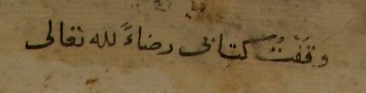 وَقَفْتُ كتابى رضاءً لله تعالى